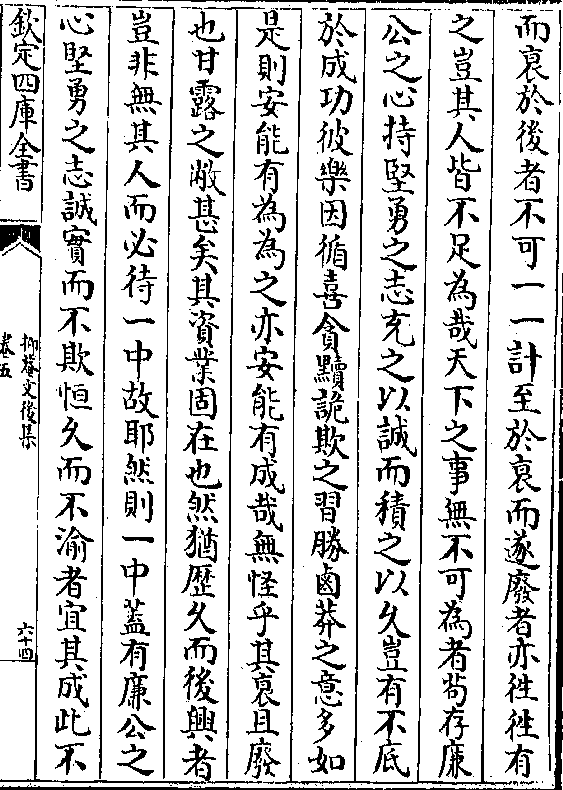 而衰於後者不可一一計至於衰而遂廢者亦徃徃有
之豈其人皆不足為哉天下之事無不可為者茍存廉
公之心持堅勇之志充之以誠而積之以久豈有不底
於成功彼樂因循喜貪黷詭欺之習勝鹵莽之意多如
是則安能有為為之亦安能有成哉無怪乎其衰且廢
也甘露之敝甚矣其資業固在也然猶歴久而後興者
豈非無其人而必待一中故耶然則一中葢有廉公之
心堅勇之志誠實而不欺恒久而不渝者宜其成此不
欽定四庫全書
抑菴文後集
卷五
六十四